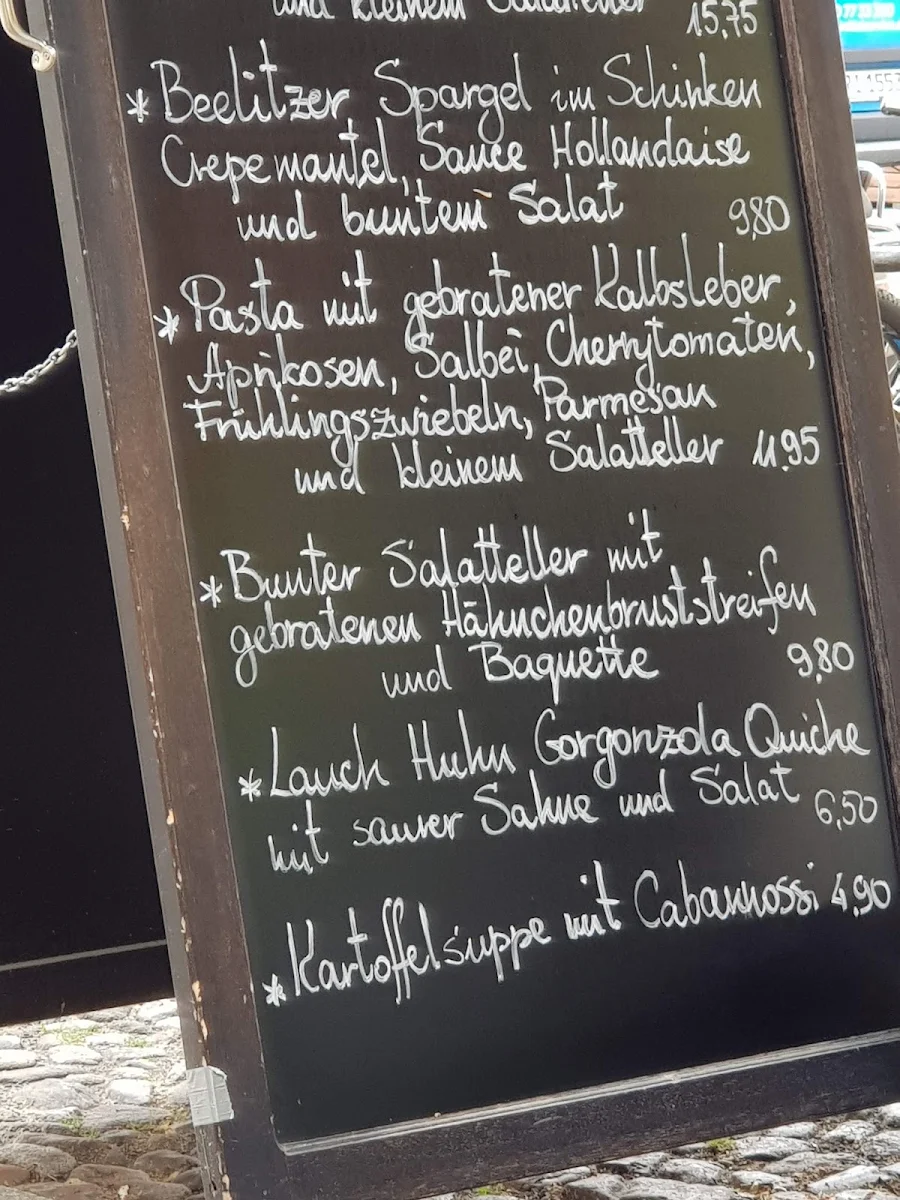 und kleinem Salatteller
15,75
* Beelitzer Spargel im Schinken
Crepemantel, Sauce Hollandaise
und buntem Salat 9,80
* Pasta mit gebratener Kalbsleber,
Aprikosen, Salbei, Cherrytomaten,
Frühlingszwiebeln, Parmesan
und kleinem Salatteller 11.95
* Bunter Salatteller mit
gebratenen Hähnchenbruststreifen
und Baguette 9,80
* Lauch Huhn Gorgonzola Quiche
mit saurer Sahne und Salat 6,50
* Kartoffelsuppe mit Cabannossi 4.90